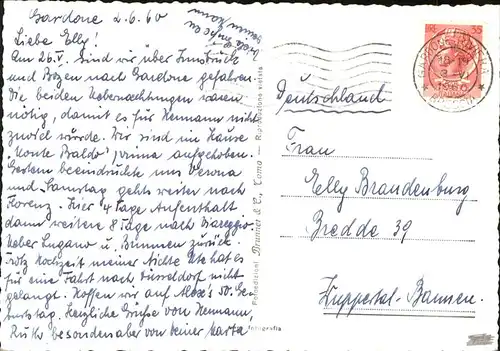 Gardone 2.6.60
Liebe Elly!
Am 26.V. sind wir über Innsbruck
und Bozen nach Gardone gefahren.
Die beiden Uebernachtungen waren
nötig, damit es für Hermann nicht
zuviel würde. Wir sind im Hause
"Monte Baldo", prima aufgehoben.
Gestern beeindruckte uns Verona
und Samstag gehts weiter nach
Florenz. Hier 4 Tage Aufenthalt
dann weitere 8 Tage nach Viareggio
Ueber Lugano u. Brunnen zurück.
Trotz Hochzeit meiner Nichte Ute hat es
für eine Fahrt nach Düsseldorf nicht
gelangt. Hoffen wir auf Alex's 50. Ge-
burtstag. Herzliche Grüsse von Hermann,
Ruth besonders aber von Deiner Marta
Deutschland
Frau
Elly Brandenburg
Bredde 39
Wuppertal-Barmen.
Brunner & C., Como - Riproduzione vietata
fotografia